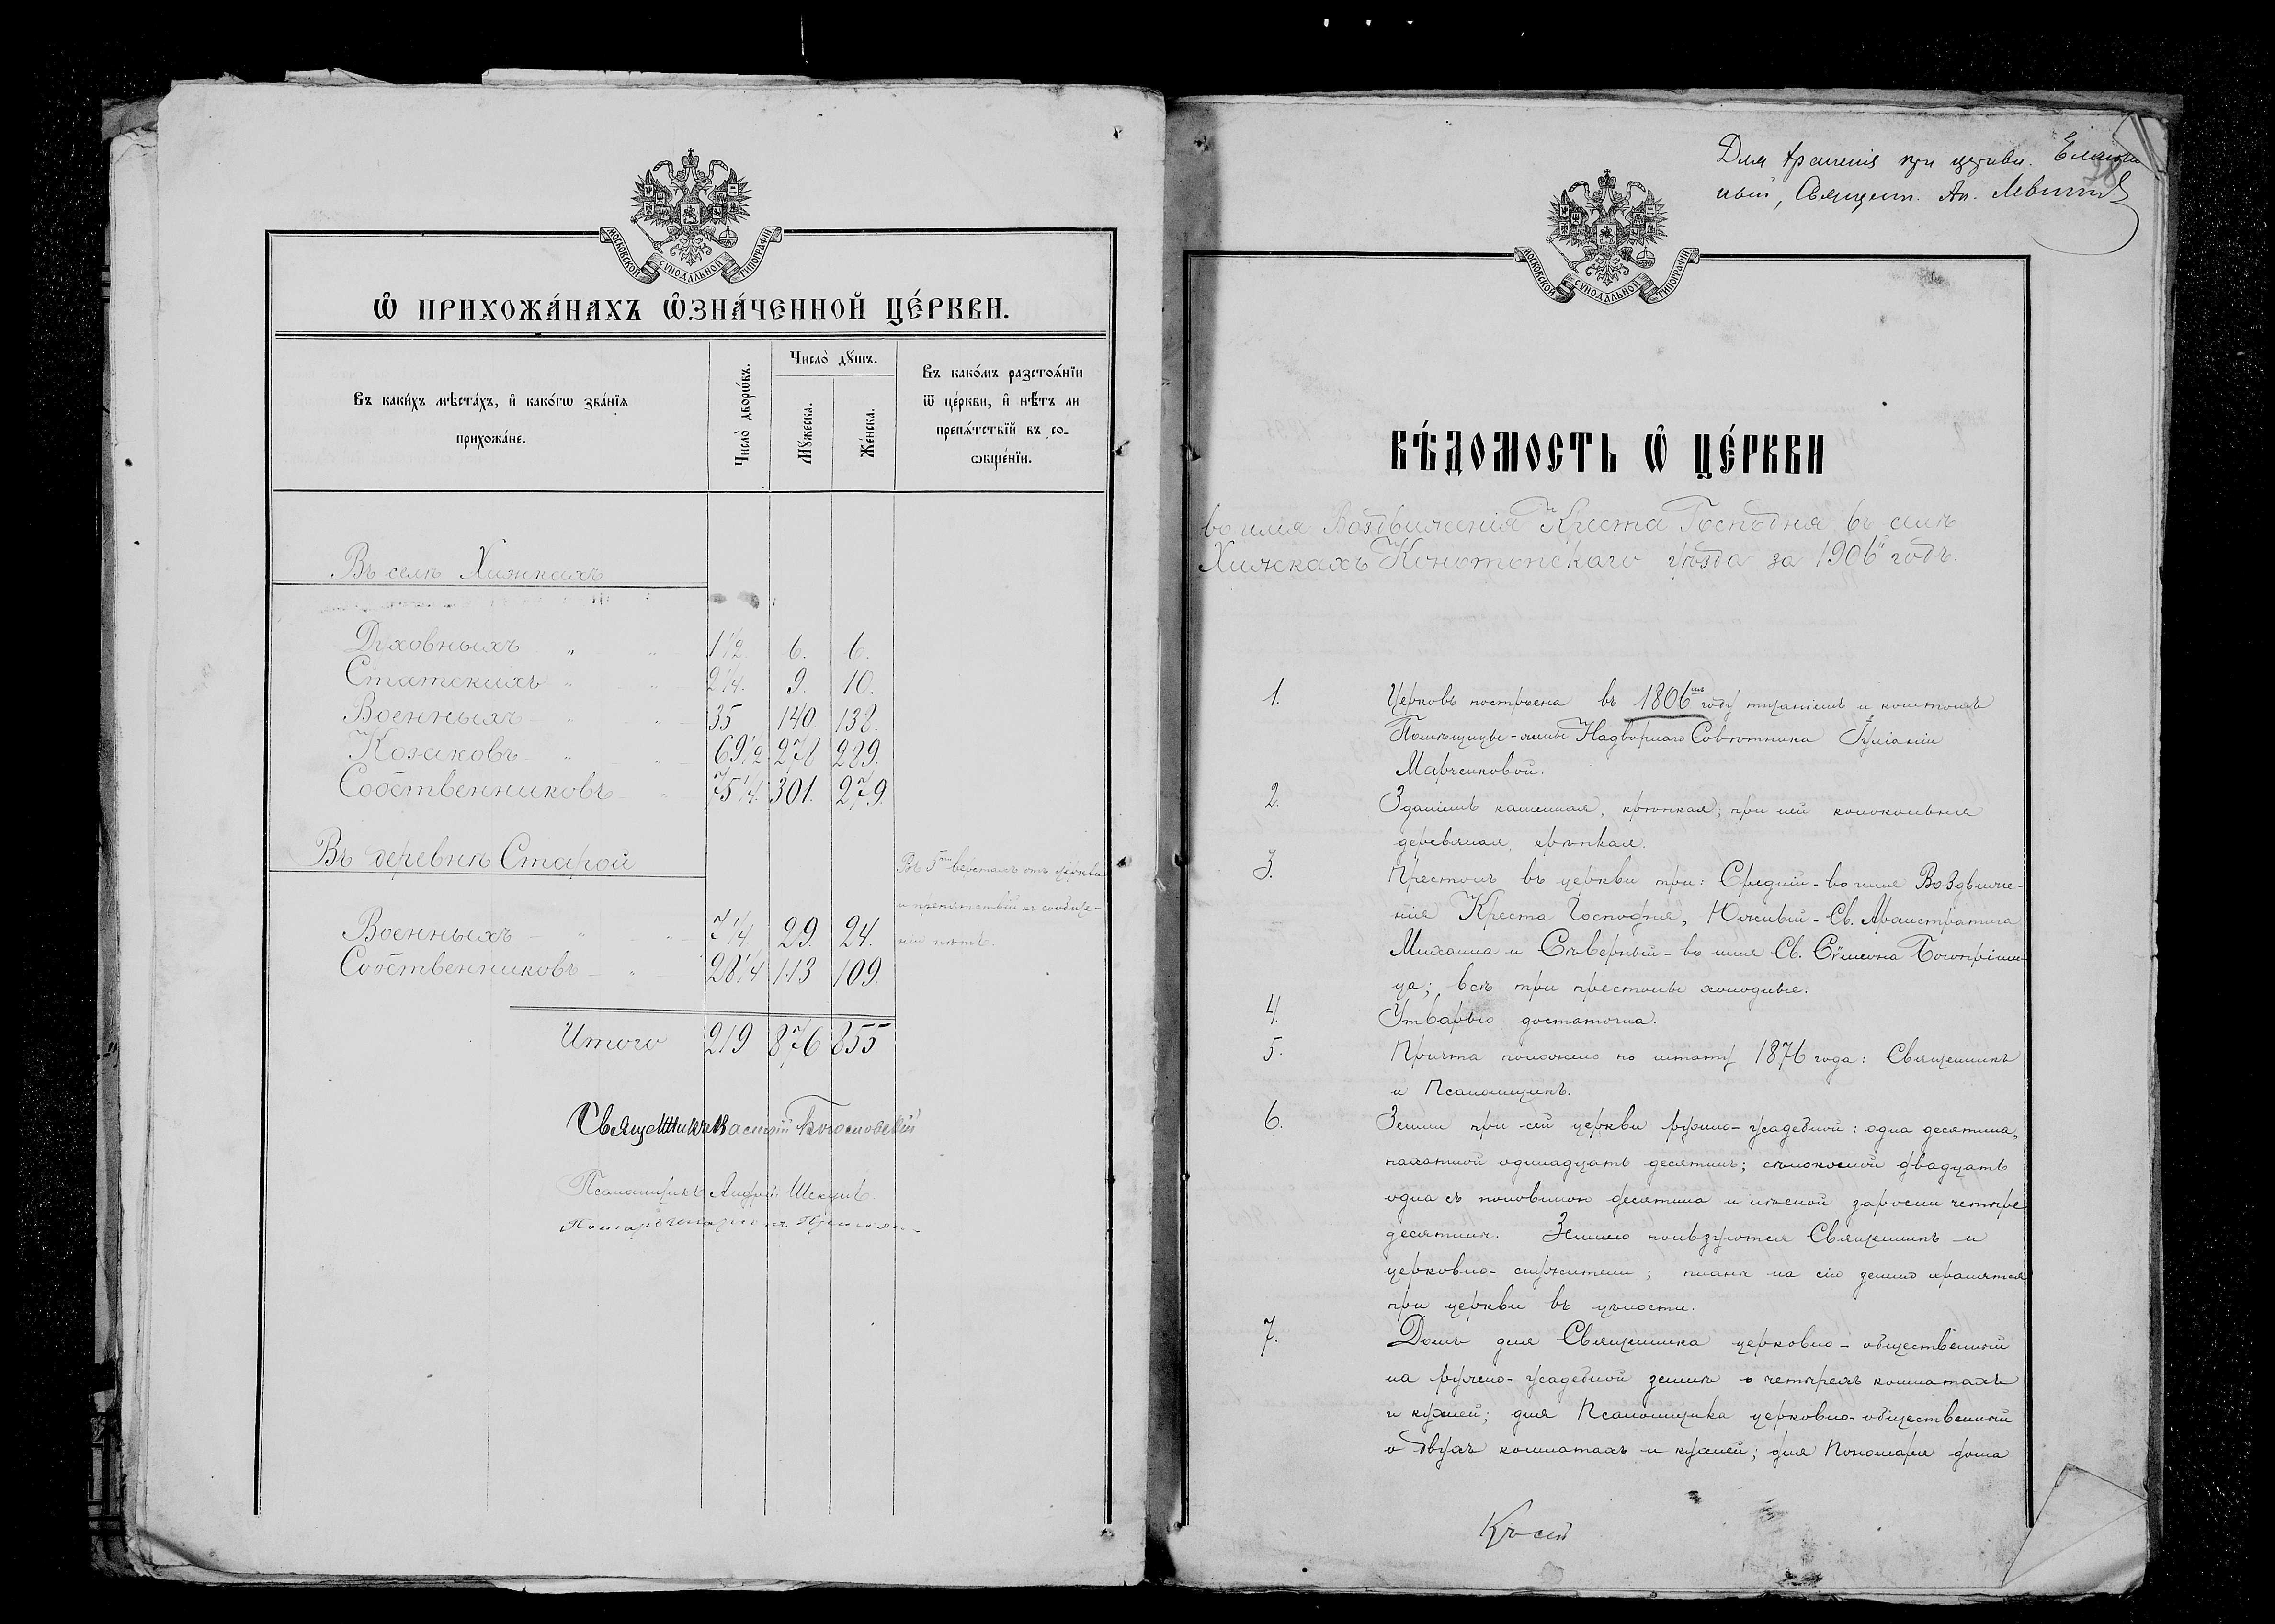 МОСКОВСКОЙ СѴНОДАЛЬНОЙ ТИПОГРАФІИ
Ѽ ПРИХОЖА́НАХЪ Ѽ́ЗНА́ЧЕННОЙ ЦЕ́РКВИ.
Въ каки́хъ мѣста́хъ, и҆ како́гѡ зва́нїѧ
прихожа́не.
Число̀ дворѡ́въ.
Число̀ дꙋ́шъ.
Мꙋ́жеска.
Же́нска.
Въ како́мъ разстоѧ́нїи
ѿ це́ркви, и҆ нѣ́тъ ли
препѧ́тствїй въ со-
ѡбще́нїи.
Въ селѣ Хижкахъ
Духовныхъ " " 1 1/2. 6. 6.
Статскихъ " " 2 1/4. 9. 10.
Военныхъ " " 35 140. 138.
Козаковъ " " 69 1/2 278 289.
Собственниковъ " 75 1/4. 301. 279.
Въ деревнѣ Старой
Въ 5ти верстахъ отъ церкви
и препятствій къ сообще-
нію нѣтъ.
Военныхъ " " 7 1/4. 29. 24.
Собственниковъ " 28 1/4 113 109.
Итого 219 876 855
Священникъ Василій Богословскій
Псаломщикъ Андрей
Для храненія при церкви.
Священ. Ап.
38
МОСКОВСКОЙ СѴНОДАЛЬНОЙ ТИПОГРАФІИ
ВѢ́ДОМОСТЬ Ѽ ЦЕ́РКВИ
во имя Воздвиженія Креста Господня въ селѣ
Хижкахъ Конотопскаго уѣзда за 1906й годъ.
1. Церковь построена въ 1806мъ году тщаніемъ и коштомъ
Помѣщицы-жены Надворнаго Совѣтника Іуліаніи
Марченковой.
2. Зданіемъ каменная, крѣпкая; при ней колокольня
деревяная, крѣпкая.
3. Престолъ въ церкви три: Средній - во имя Воздвиже-
нія Креста Господня, Южный - Св. Архистратига
Михаила и Сѣверный - во имя Св. Сѵмеона Богопріим-
ца; всѣ три престолы холодные.
4. Утварью достаточна.
5. Причта положено по штату 1876 года: Священникъ
и Псаломщикъ.
6. Земли при сей церкви ружно-усадебной: одна десятина,
пахатной одинадцать десятинъ; сѣнокосной двадцать
одна съ половиною десятина и лѣсной заросли четыре
десятины. Землею пользуются Священникъ и
церковно-служители; планъ на сію землю хранится
при церкви въ цѣлости.
7. Домъ для Священника церковно-общественный
на ружно-усадебной землѣ о четырехъ комнатахъ
и кухней; для Псаломщика церковно-общественный
о двухъ комнатахъ и кухней; для Пономаря дома
Къ сей